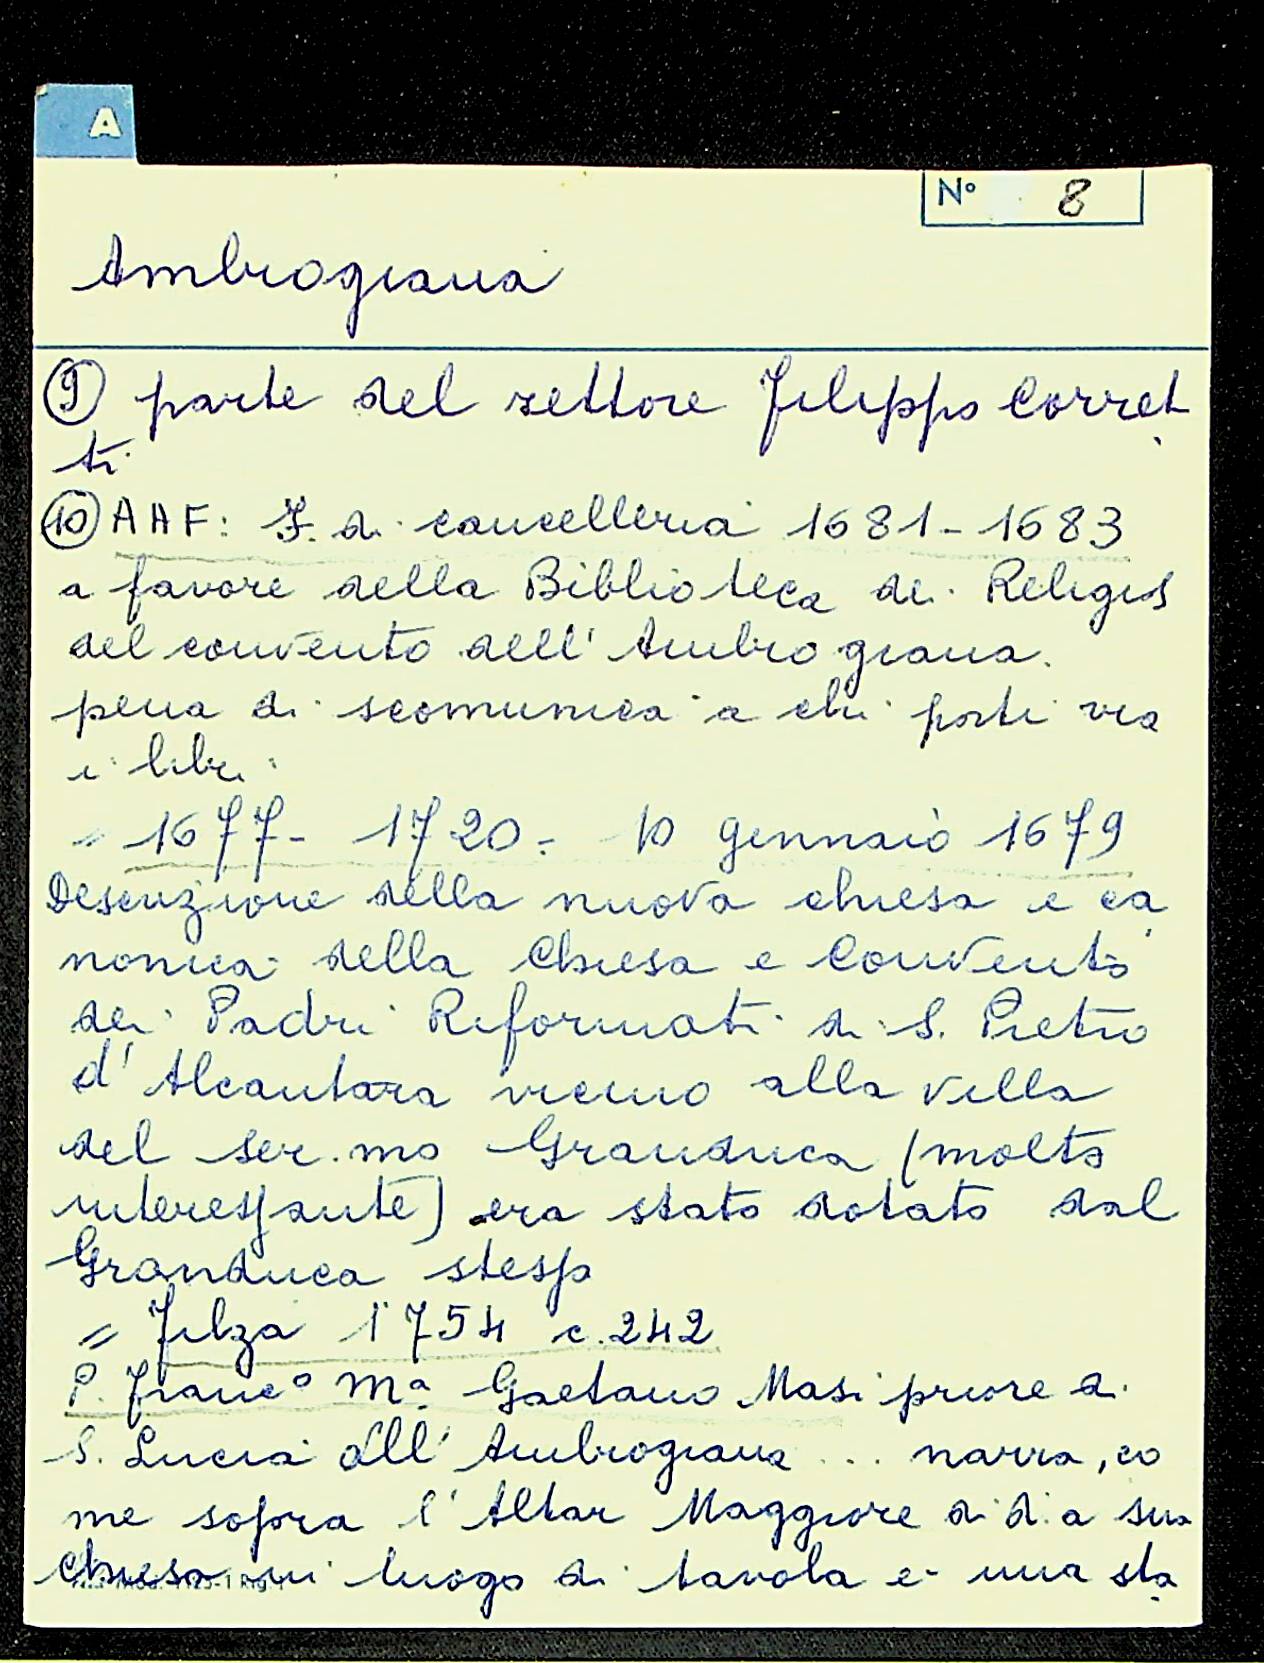 A
N° 8
Ambrogiana
⑨ parte del rettore Filippo Corret
ti
⑩ AAF: F. di cancelleria 1681-1683
a favore della Biblioteca dei Religios
del convento dell'Ambrogiana.
pena di scomunica a chi porti via
i libri
= 1677- 1720 = 10 gennaio 1679
Descrizione della nuova chiesa e ca
nonica della Chiesa e Convento
dei Padri Riformati di S. Pietro
d'Alcantara vicino alla villa
del ser.mo Granduca (molto
interessante) era stato dotato dal
Granduca stesso
= Filza 1754 c.242
P. Franc° Mª Gaetano Masi priore di
S. Lucia all'Ambrogiana ... narra, co
me sopra l'Altar Maggiore di d.a sua
chiesa in luogo di tavola e- una sta